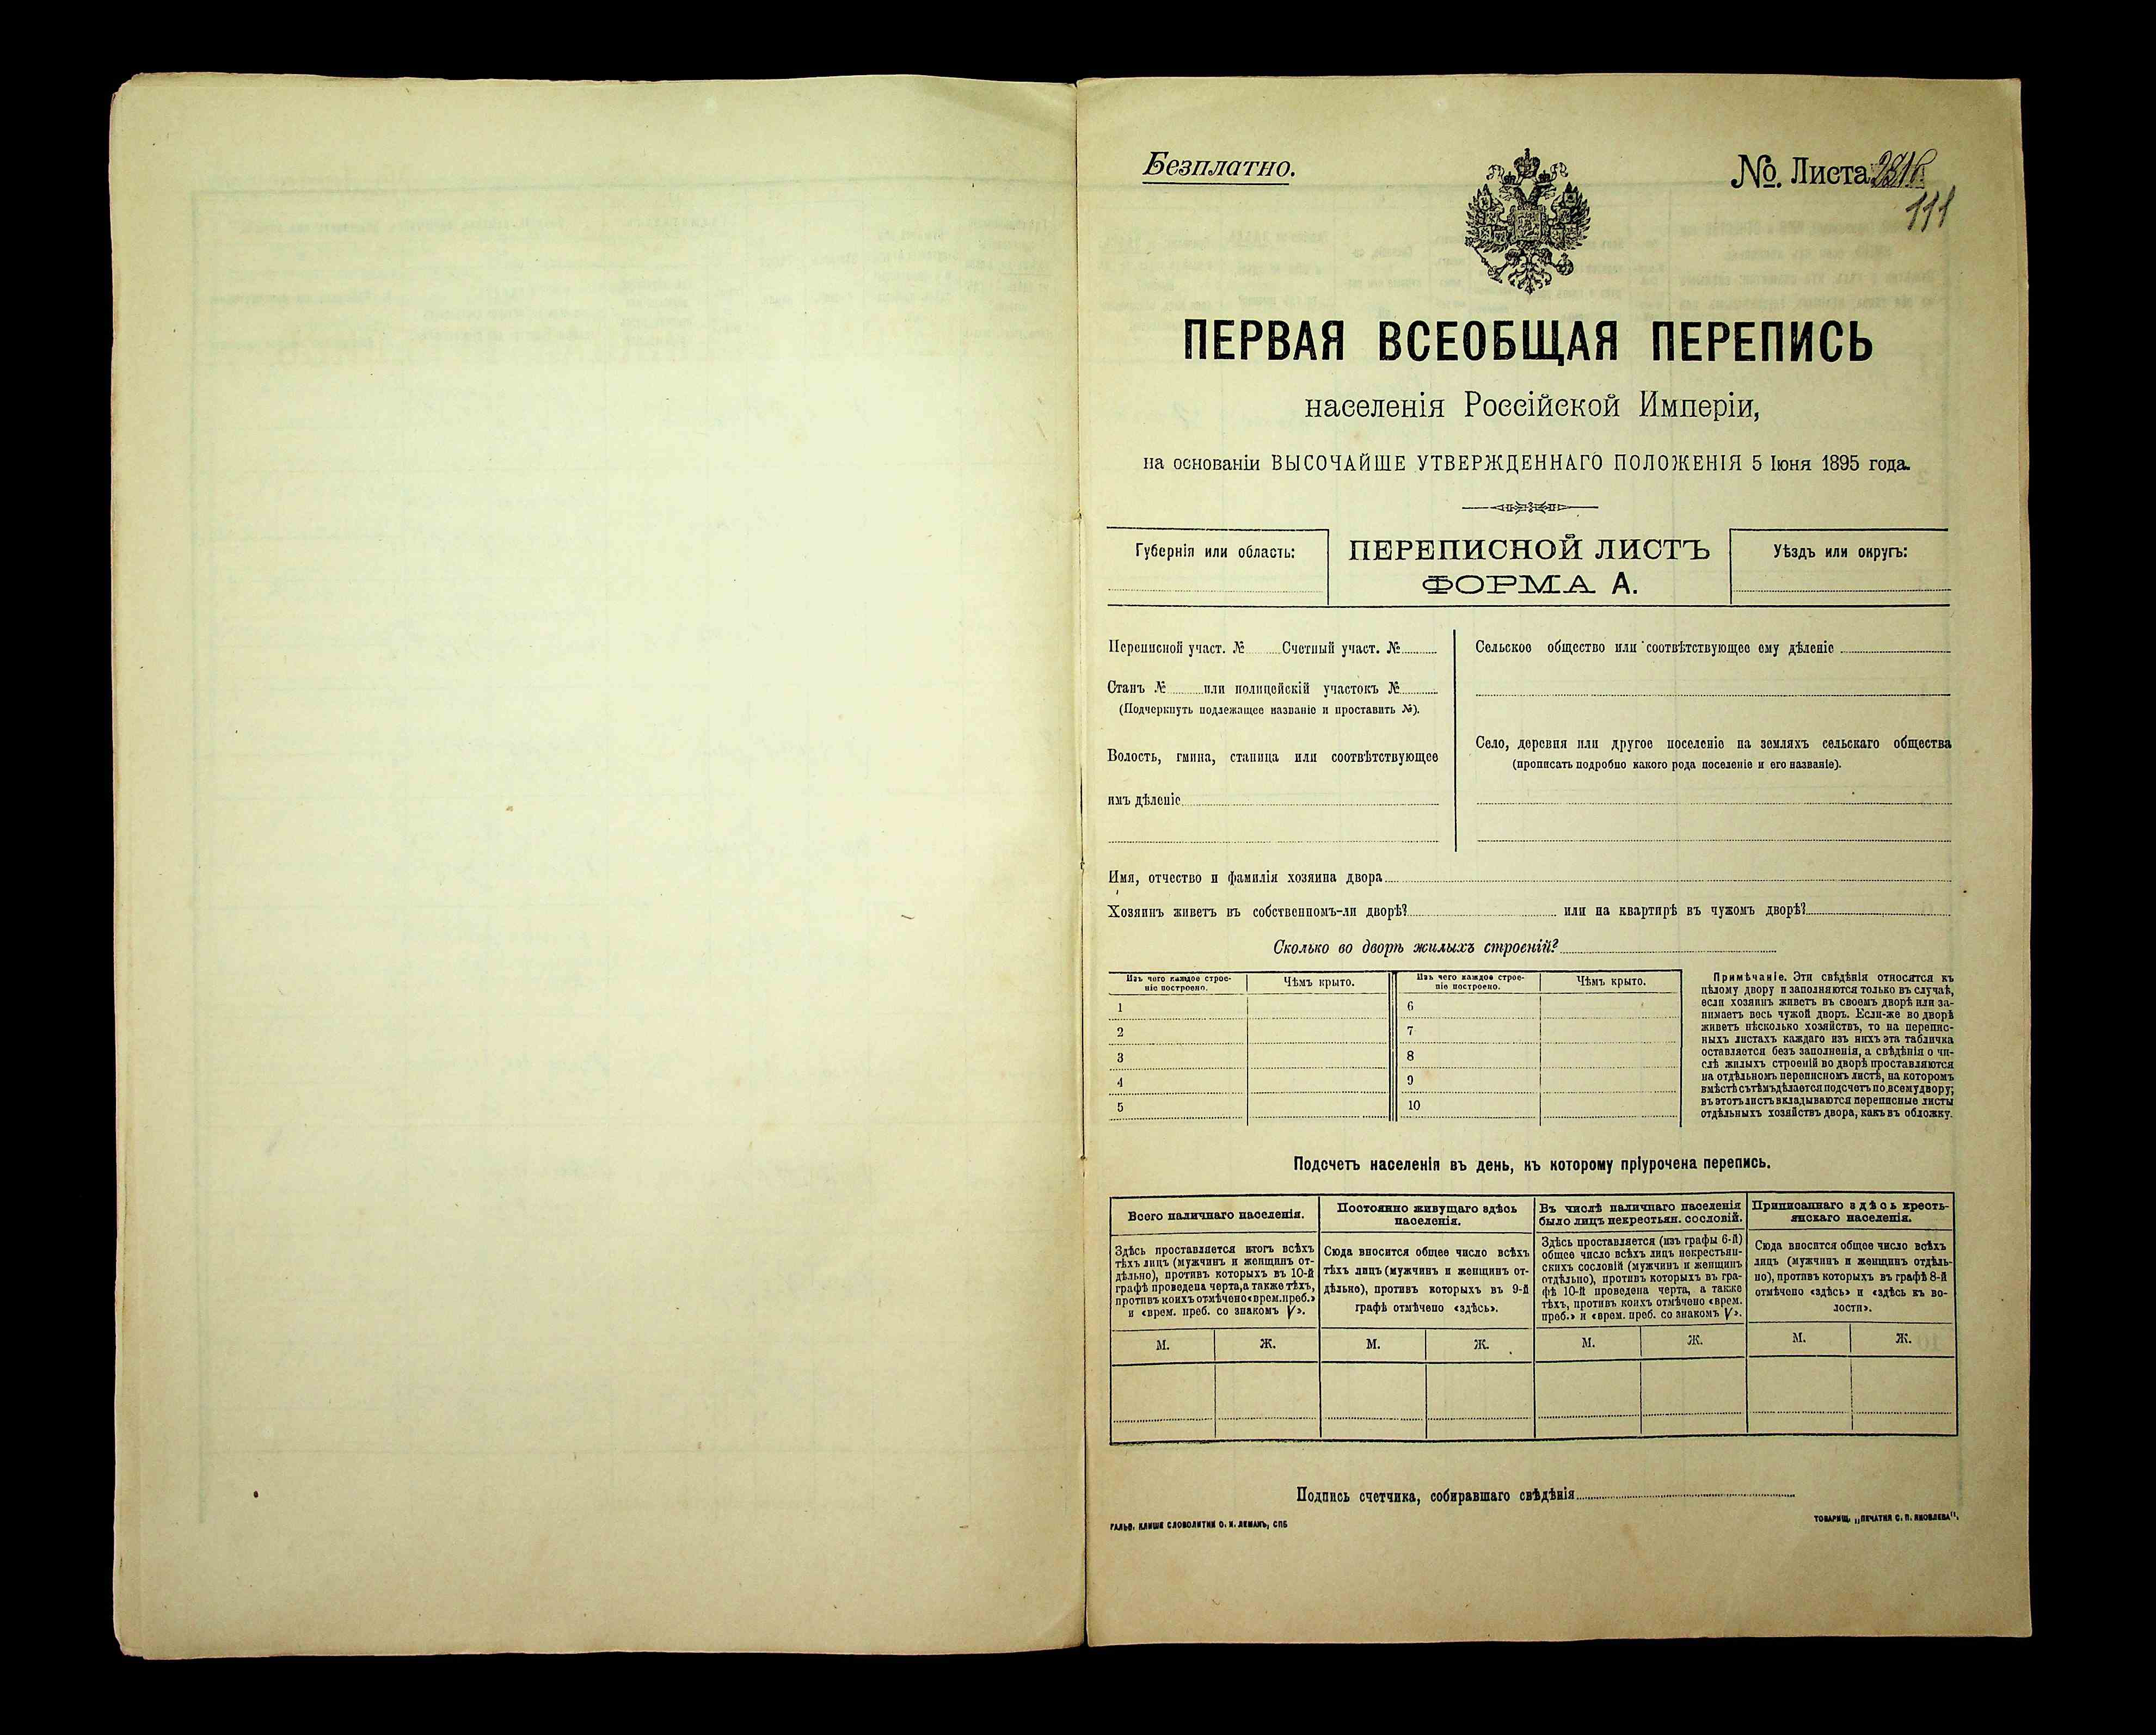 Безплатно.
№. Листа
111
ПЕРВАЯ ВСЕОБЩАЯ ПЕРЕПИСЬ
населенія Россійской Имперіи,
на основаніи ВЫСОЧАЙШЕ УТВЕРЖДЕННАГО ПОЛОЖЕНІЯ 5 Іюня 1895 года.
Губернія или область:
ПЕРЕПИСНОЙ ЛИСТЪ
ФОРМА А.
Уѣздъ или округъ:
Переписной участ. № Счетный участ. №
Станъ № или полицейскій участокъ №
(Подчеркнуть подлежащее названіе и проставить №).
Волость, гмина, станица или соотвѣтствующее
имъ дѣленіе
Сельское общество или соотвѣтствующее ему дѣленіе
Село, деревня или другое поселеніе на земляхъ сельскаго общества
(прописать подробно какого рода поселеніе и его названіе).
Имя, отчество и фамилія хозяина двора
Хозяинъ живетъ въ собственномъ-ли дворѣ? или на квартирѣ въ чужомъ дворѣ?
Сколько во дворѣ жилыхъ строеній?
Изъ чего каждое строе-
ніе построено.
Чѣмъ крыто.
1
2
3
4
5
Изъ чего каждое строе-
ніе построено.
Чѣмъ крыто.
6
7
8
9
10
Примѣчаніе. Эти свѣдѣнія относятся къ
цѣлому двору и заполняются только въ случаѣ,
если хозяинъ живетъ въ своемъ дворѣ или за-
нимаетъ весь чужой дворъ. Если-же во дворѣ
живетъ нѣсколько хозяйствъ, то на перепис-
ныхъ листахъ каждаго изъ нихъ эта табличка
оставляется безъ заполненія, а свѣдѣнія о чи-
слѣ жилыхъ строеній во дворѣ проставляются
на отдѣльномъ переписномъ листѣ, на которомъ
вмѣстѣ съ тѣмъ дѣлается подсчетъ по всему двору;
въ этотъ листъ вкладываются переписные листы
отдѣльныхъ хозяйствъ двора, какъ въ обложку.
Подсчетъ населенія въ день, къ которому пріурочена перепись.
Всего наличнаго населенія.
Здѣсь проставляется итогъ всѣхъ
тѣхъ лицъ (мужчинъ и женщинъ от-
дѣльно), противъ которыхъ въ 10-й
графѣ проведена черта, а также тѣхъ,
противъ коихъ отмѣчено «врем. преб.»
и «врем. преб. со знакомъ V».
М. Ж.
Постоянно живущаго здѣсь
населенія.
Сюда вносится общее число всѣхъ
тѣхъ лицъ (мужчинъ и женщинъ от-
дѣльно), противъ которыхъ въ 9-й
графѣ отмѣчено «здѣсь».
М. Ж.
Въ числѣ наличнаго населенія
было лицъ некрестьян. сословій.
Здѣсь проставляется (изъ графы 6-й)
общее число всѣхъ лицъ некрестьян-
скихъ сословій (мужчинъ и женщинъ
отдѣльно), противъ которыхъ въ гра-
фѣ 10-й проведена черта, а также
тѣхъ, противъ коихъ отмѣчено «врем.
преб.» и «врем. преб. со знакомъ V».
М. Ж.
Приписаннаго здѣсь кресть-
янскаго населенія.
Сюда вносится общее число всѣхъ
лицъ (мужчинъ и женщинъ отдѣль-
но), противъ которыхъ въ графѣ 8-й
отмѣчено «здѣсь» и «здѣсь къ во-
лости».
М. Ж.
Подпись счетчика, собиравшаго свѣдѣнія
ГАЛЬВ. КЛИШЕ СЛОВОЛИТНИ О. И. ЛЕМАНЪ, СПБ
ТОВАРИЩ. „ПЕЧАТНЯ С. П. ЯКОВЛЕВА".